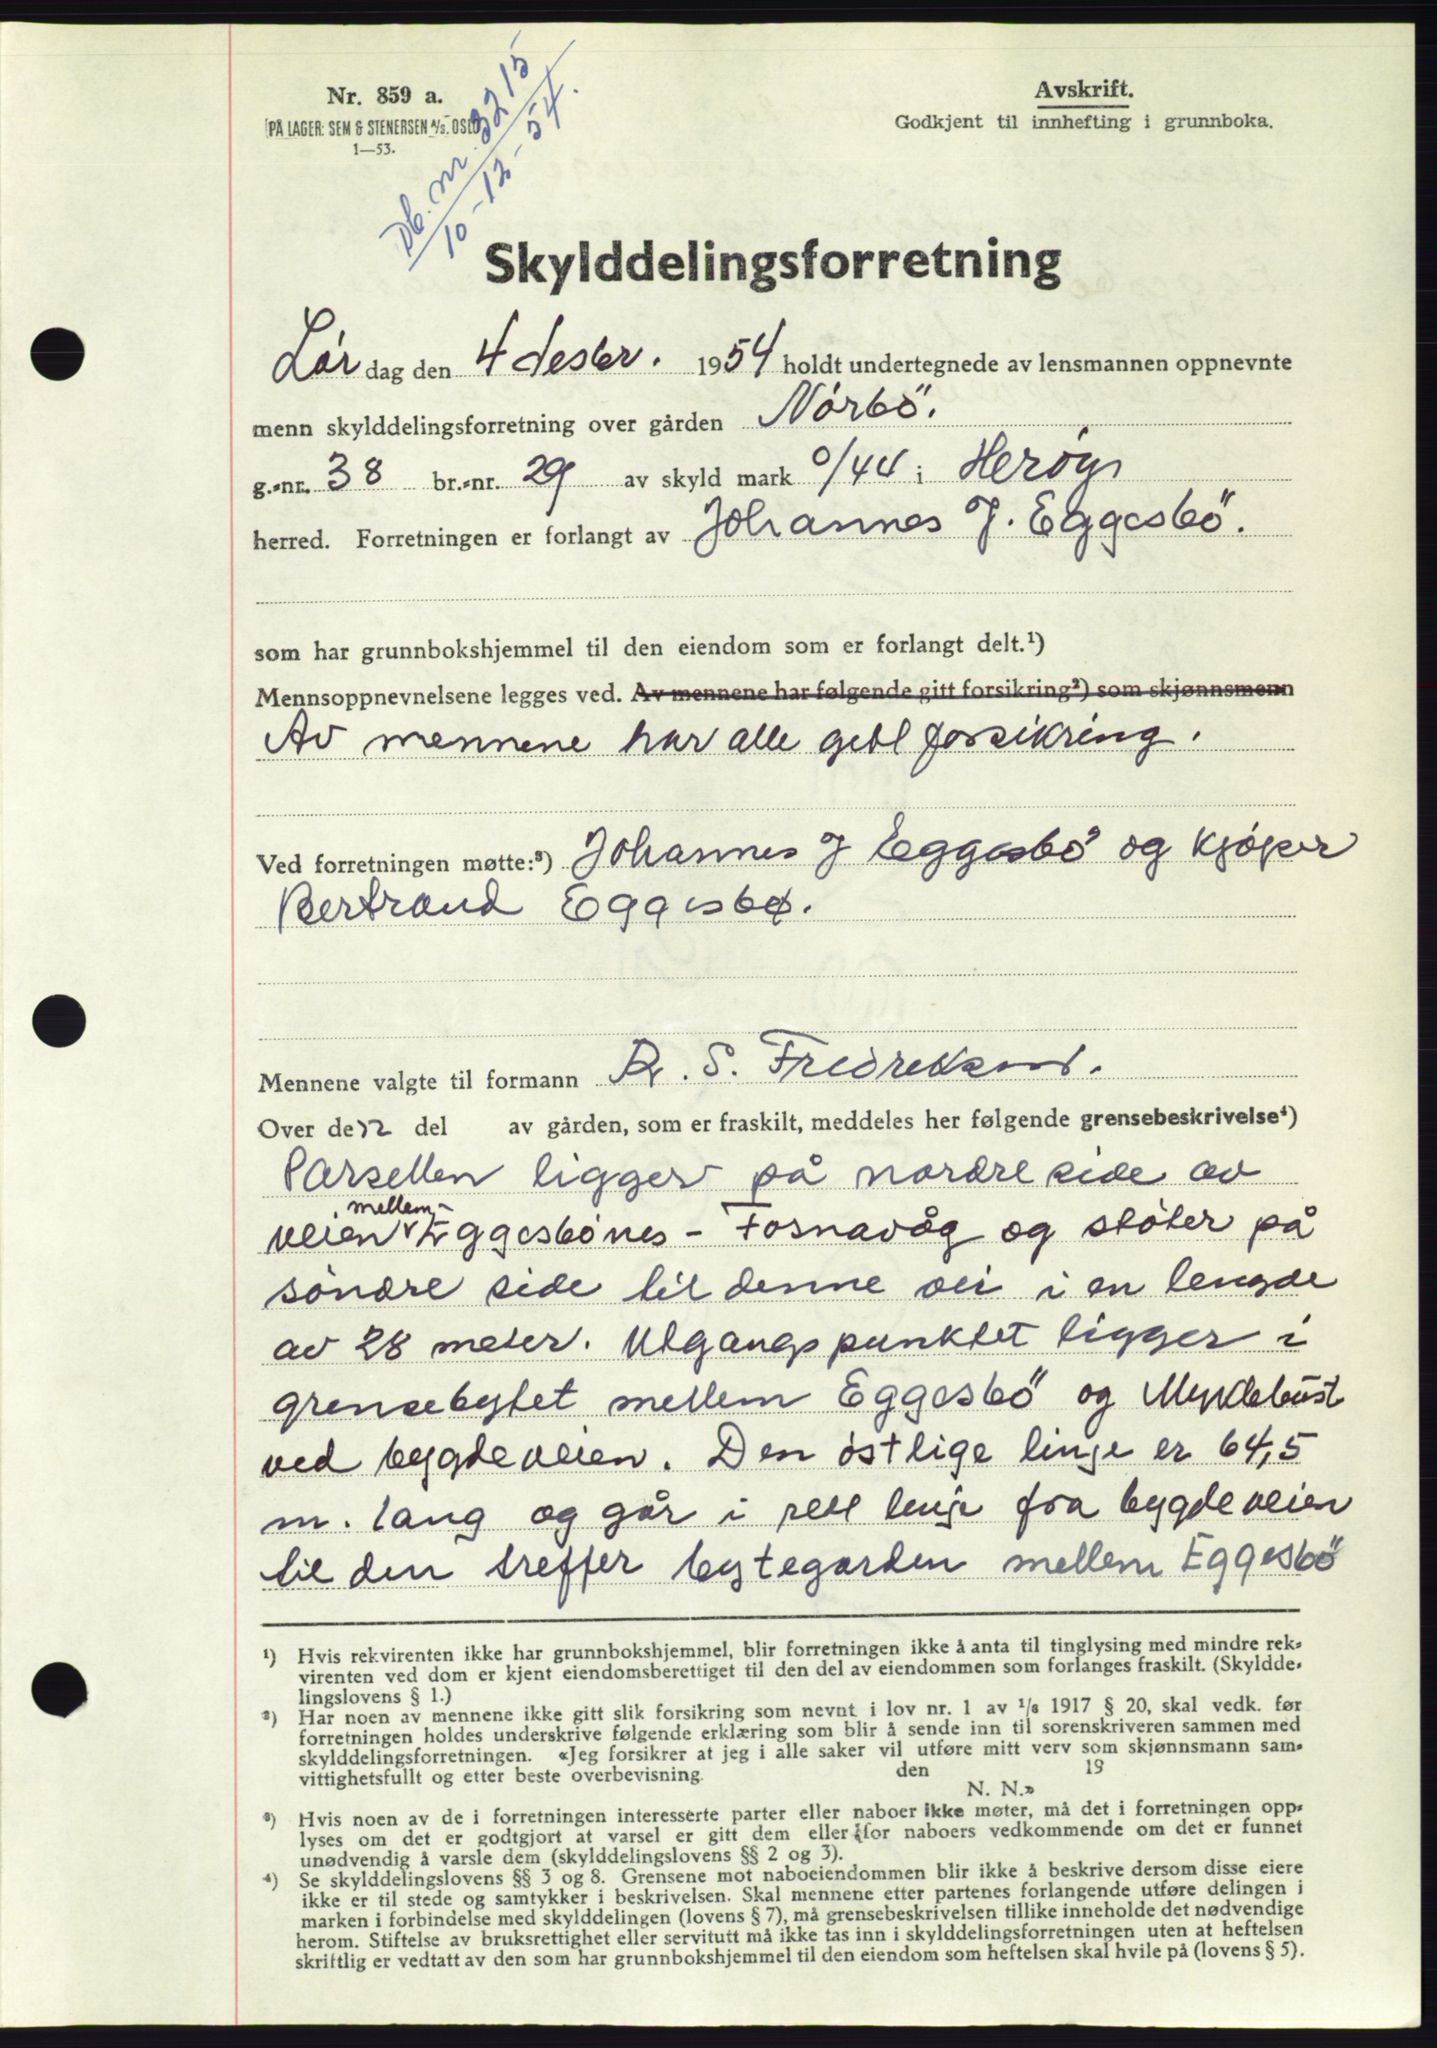 Nr. 859 a.
PÅ LAGER: SEM & STENERSEN A/S. OSLO
1—53.
Db. nr. 3215
10-12-54.
Avskrift.
Godkjent til innhefting i grunnboka.
Skylddelingsforretning
Lør dag den 4 desbr. 1954 holdt undertegnede av lensmannen oppnevnte
menn skylddelingsforretning over gården Nörbö.
g.-nr. 38 br.-nr. 29 av skyld mark 0/44 i Herøy
herred. Forretningen er forlangt av Johannes J. Eggesbö.
som har grunnbokshjemmel til den eiendom som er forlangt delt.¹)
Mennsoppnevnelsene legges ved. Av mennene har følgende gitt forsikring²) som skjønnsmenn
Av mennene har alle gitt forsikring.
Ved forretningen møtte:³) Johannes J Eggesbö og kjöper
Bertrand Eggesbø.
Mennene valgte til formann R. S. Fredreksen.
Over den del av gården, som er fraskilt, meddeles her følgende grensebeskrivelse⁴)
Parsellen ligger på nordre side av
veien mellem Eggesbönes - Fosnavåg og stöter på
söndre side til denne vei i en lengde
av 28 meter. Utgangspunktet ligger i
grensebytet mellem Eggesbö og Myklebust
ved bygdeveien. Den östlige linje er 64,5
m. lang og går i rett linje fra bygdeveien
til den treffer bytegarden mellem Eggesbö
¹) Hvis rekvirenten ikke har grunnbokshjemmel, blir forretningen ikke å anta til tinglysing med mindre rek-
virenten ved dom er kjent eiendomsberettiget til den del av eiendommen som forlanges fraskilt. (Skyldde-
lingslovens § 1.)
²) Har noen av mennene ikke gitt slik forsikring som nevnt i lov nr. 1 av 1/6 1917 § 20, skal vedk. før
forretningen holdes underskrive følgende erklæring som blir å sende inn til sorenskriveren sammen med
skylddelingsforretningen. «Jeg forsikrer at jeg i alle saker vil utføre mitt verv som skjønnsmann sam-
vittighetsfullt og etter beste overbevisning. den 19
N. N.»
³) Hvis noen av de i forretningen interesserte parter eller naboer ikke møter, må det i forretningen opp-
lyses om det er godtgjort at varsel er gitt dem eller for naboers vedkommende om det er funnet
unødvendig å varsle dem (skylddelingslovens §§ 2 og 3).
⁴) Se skylddelingslovens §§ 3 og 8. Grensene mot naboeiendommen blir ikke å beskrive dersom disse eiere
ikke er til stede og samtykker i beskrivelsen. Skal mennene etter partenes forlangende utføre delingen i
marken i forbindelse med skylddelingen (lovens § 7), må grensebeskrivelsen tillike inneholde det nødvendige
herom. Stiftelse av bruksrettighet eller servitutt må ikke tas inn i skylddelingsforretningen uten at heftelsen
skriftlig er vedtatt av den som har grunnbokshjemmel til den eiendom som heftelsen skal hvile på (lovens § 5).